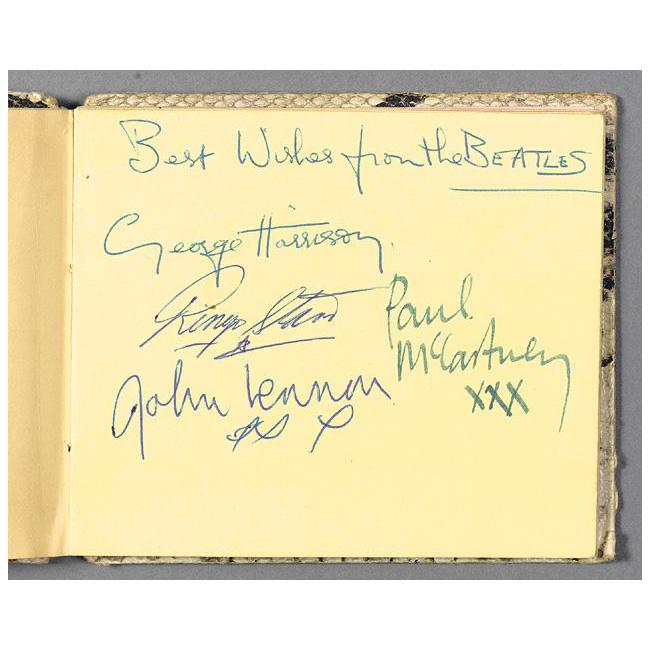 Best Wishes from the BEATLES
George Harrison
Ringo Starr
Paul
McCartney
xxx
John Lennon
xx x